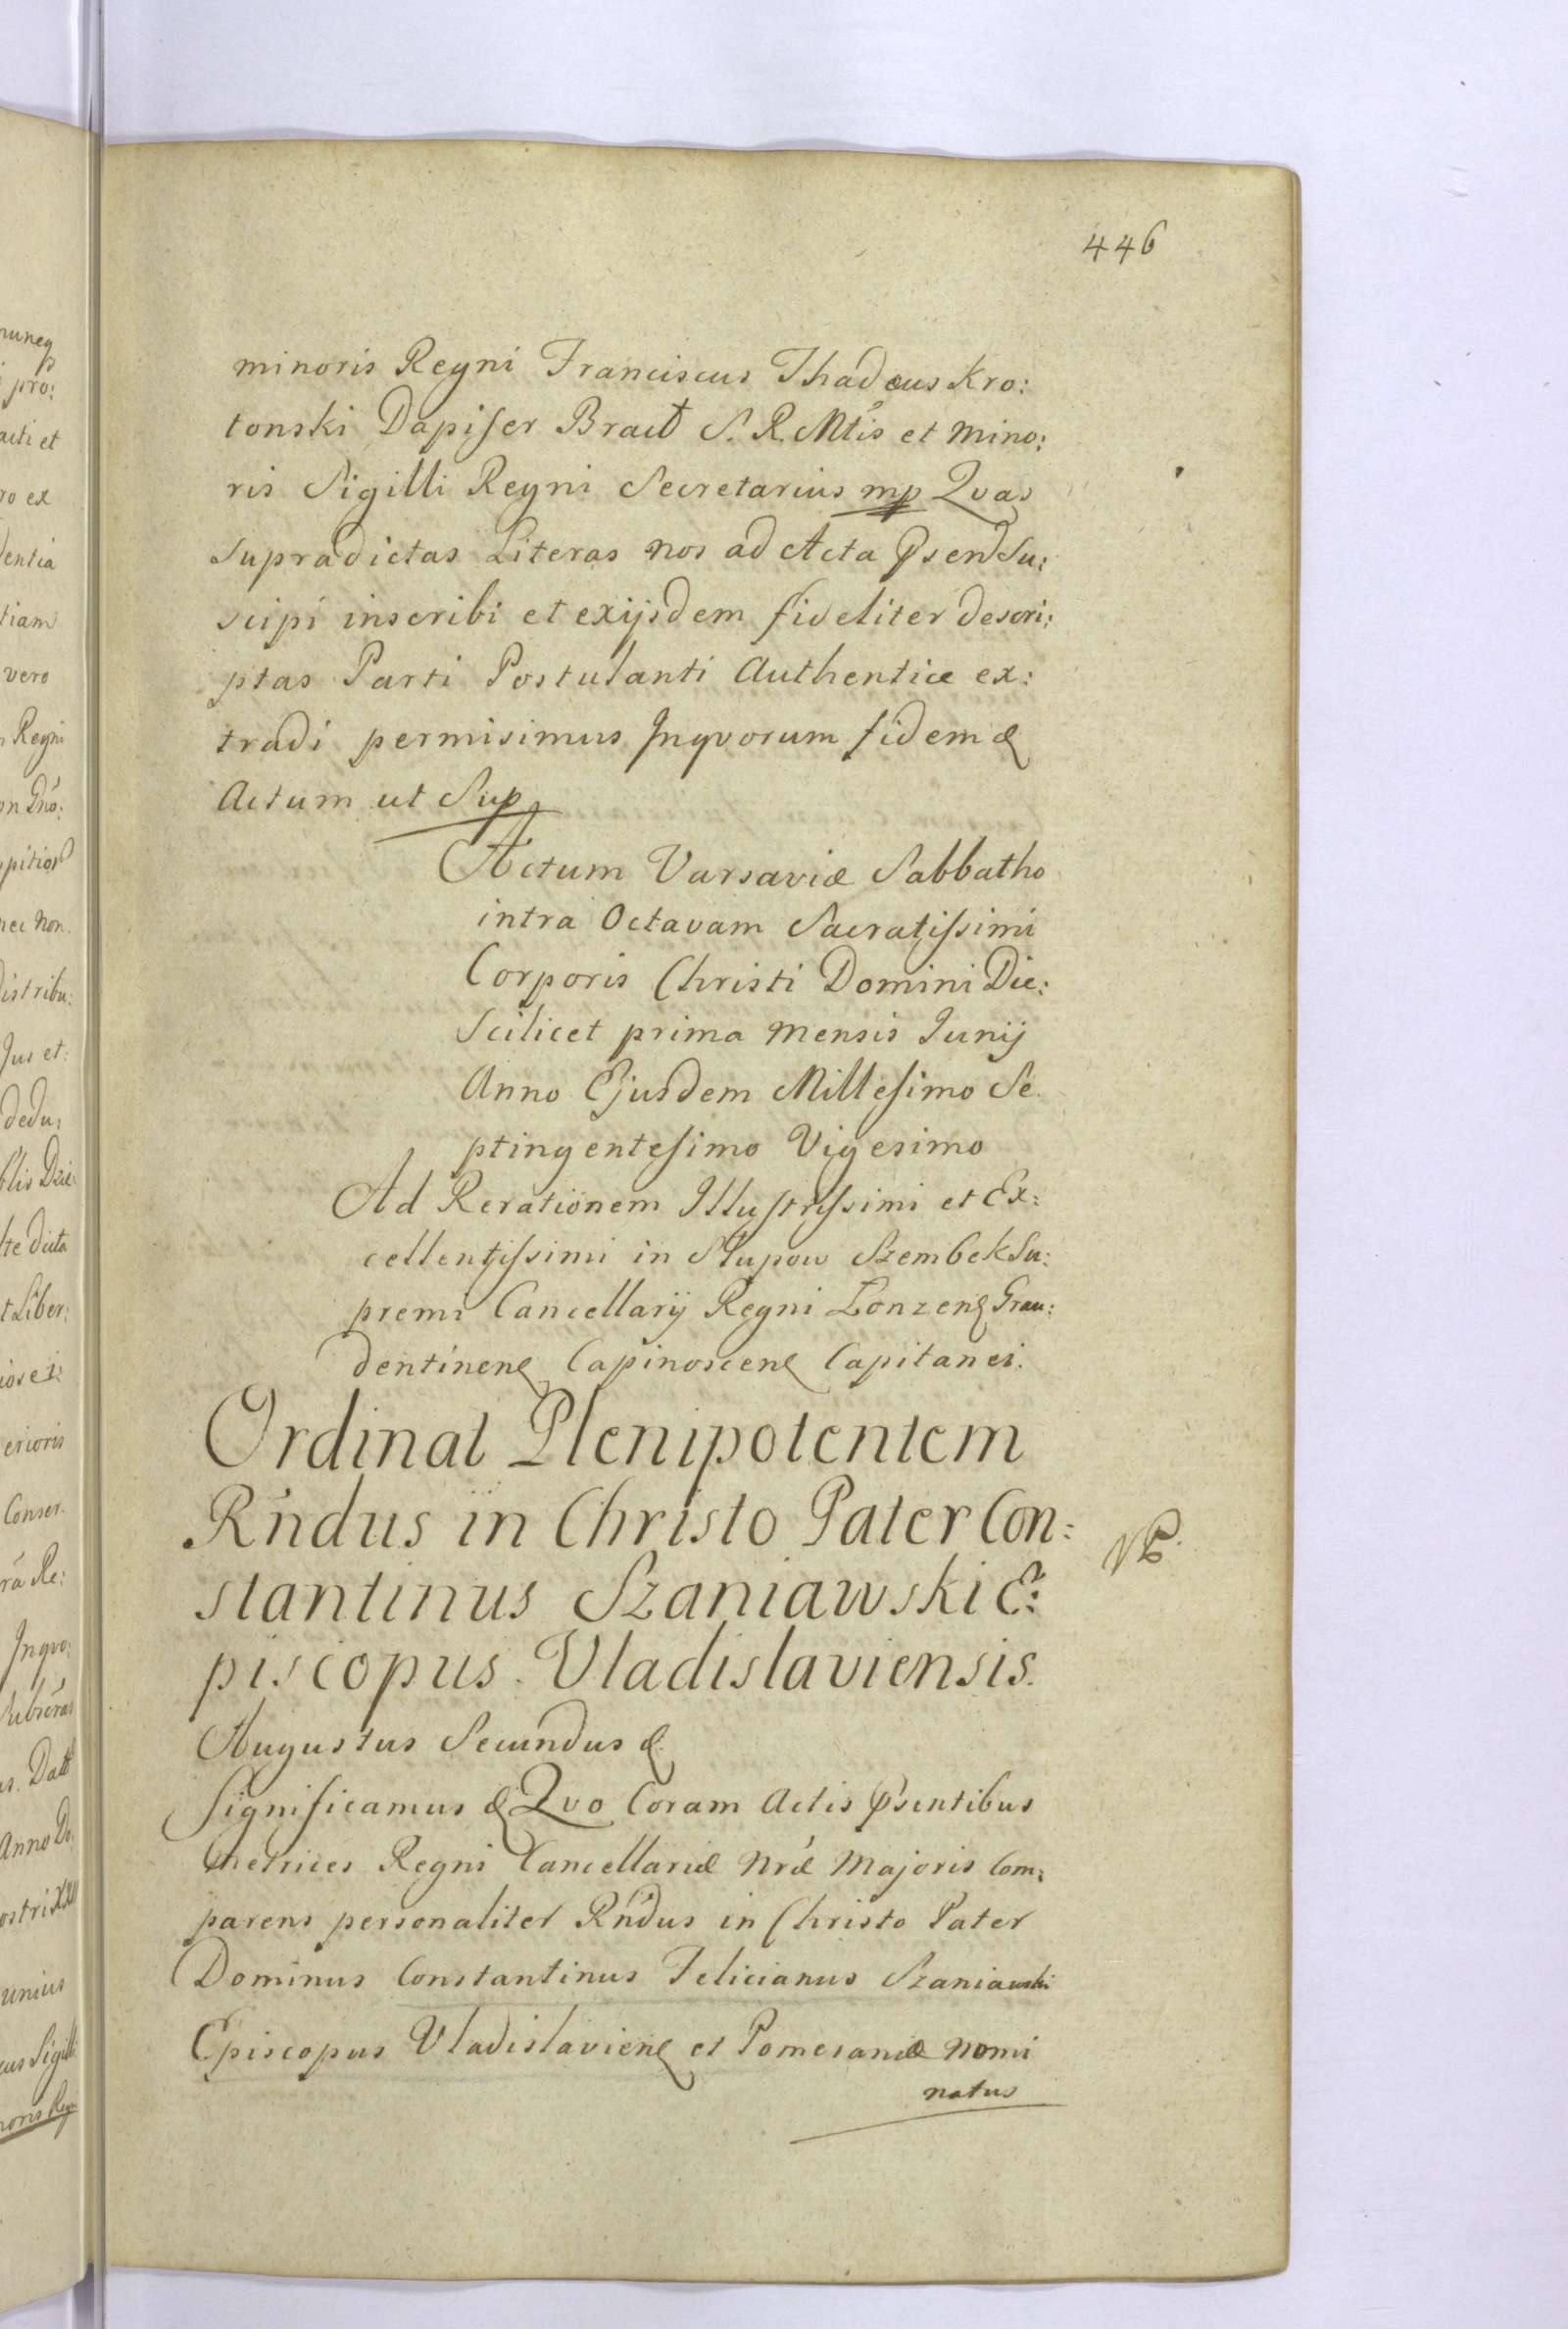 446
minoris Regni Franciscus Thadæus Kro:
tonski Dapifer Bracł S. R. Mtis et Mino:
ris Sigilli Regni Secretarius mp Qvas
supradictas Literas nos ad Acta Psend Su:
scipi inscribi et exijsdem fideliter descri:
ptas Parti Postulanti Authentice ex:
tradi permisimus Inqvorum fidem &
Actum ut Sup
Actum Varsaviæ Sabbatho
intra Octavam Sacratissimi
Corporis Christi Domini Die:
Scilicet prima Mensis Junij
Anno Ejusdem Millesimo Se
ptingentesimo Vigesimo
Ad Rerationem Illustrissimi et Ex:
cellentissimi in Słupow Szembek Su:
premi Cancellarij Regni Lonzen Grau:
dentinen Capinoscen Capitanei.
Ordinat Plenipotentem
Rndus in Christo Pater Con:
stantinus Szaniawski E:
piscopus Vladislaviensis.
Augustus Secundus &
Significamus & Qvo Coram Actis Psentibus
Metrices Regni Cancellariæ Nræ Majoris Com:
parens personaliter Rndus in Christo Pater
Dominus Constantinus Felicianus Szaniawski
Episcopus Vladislavien et Pomeraniæ Nomi
natus